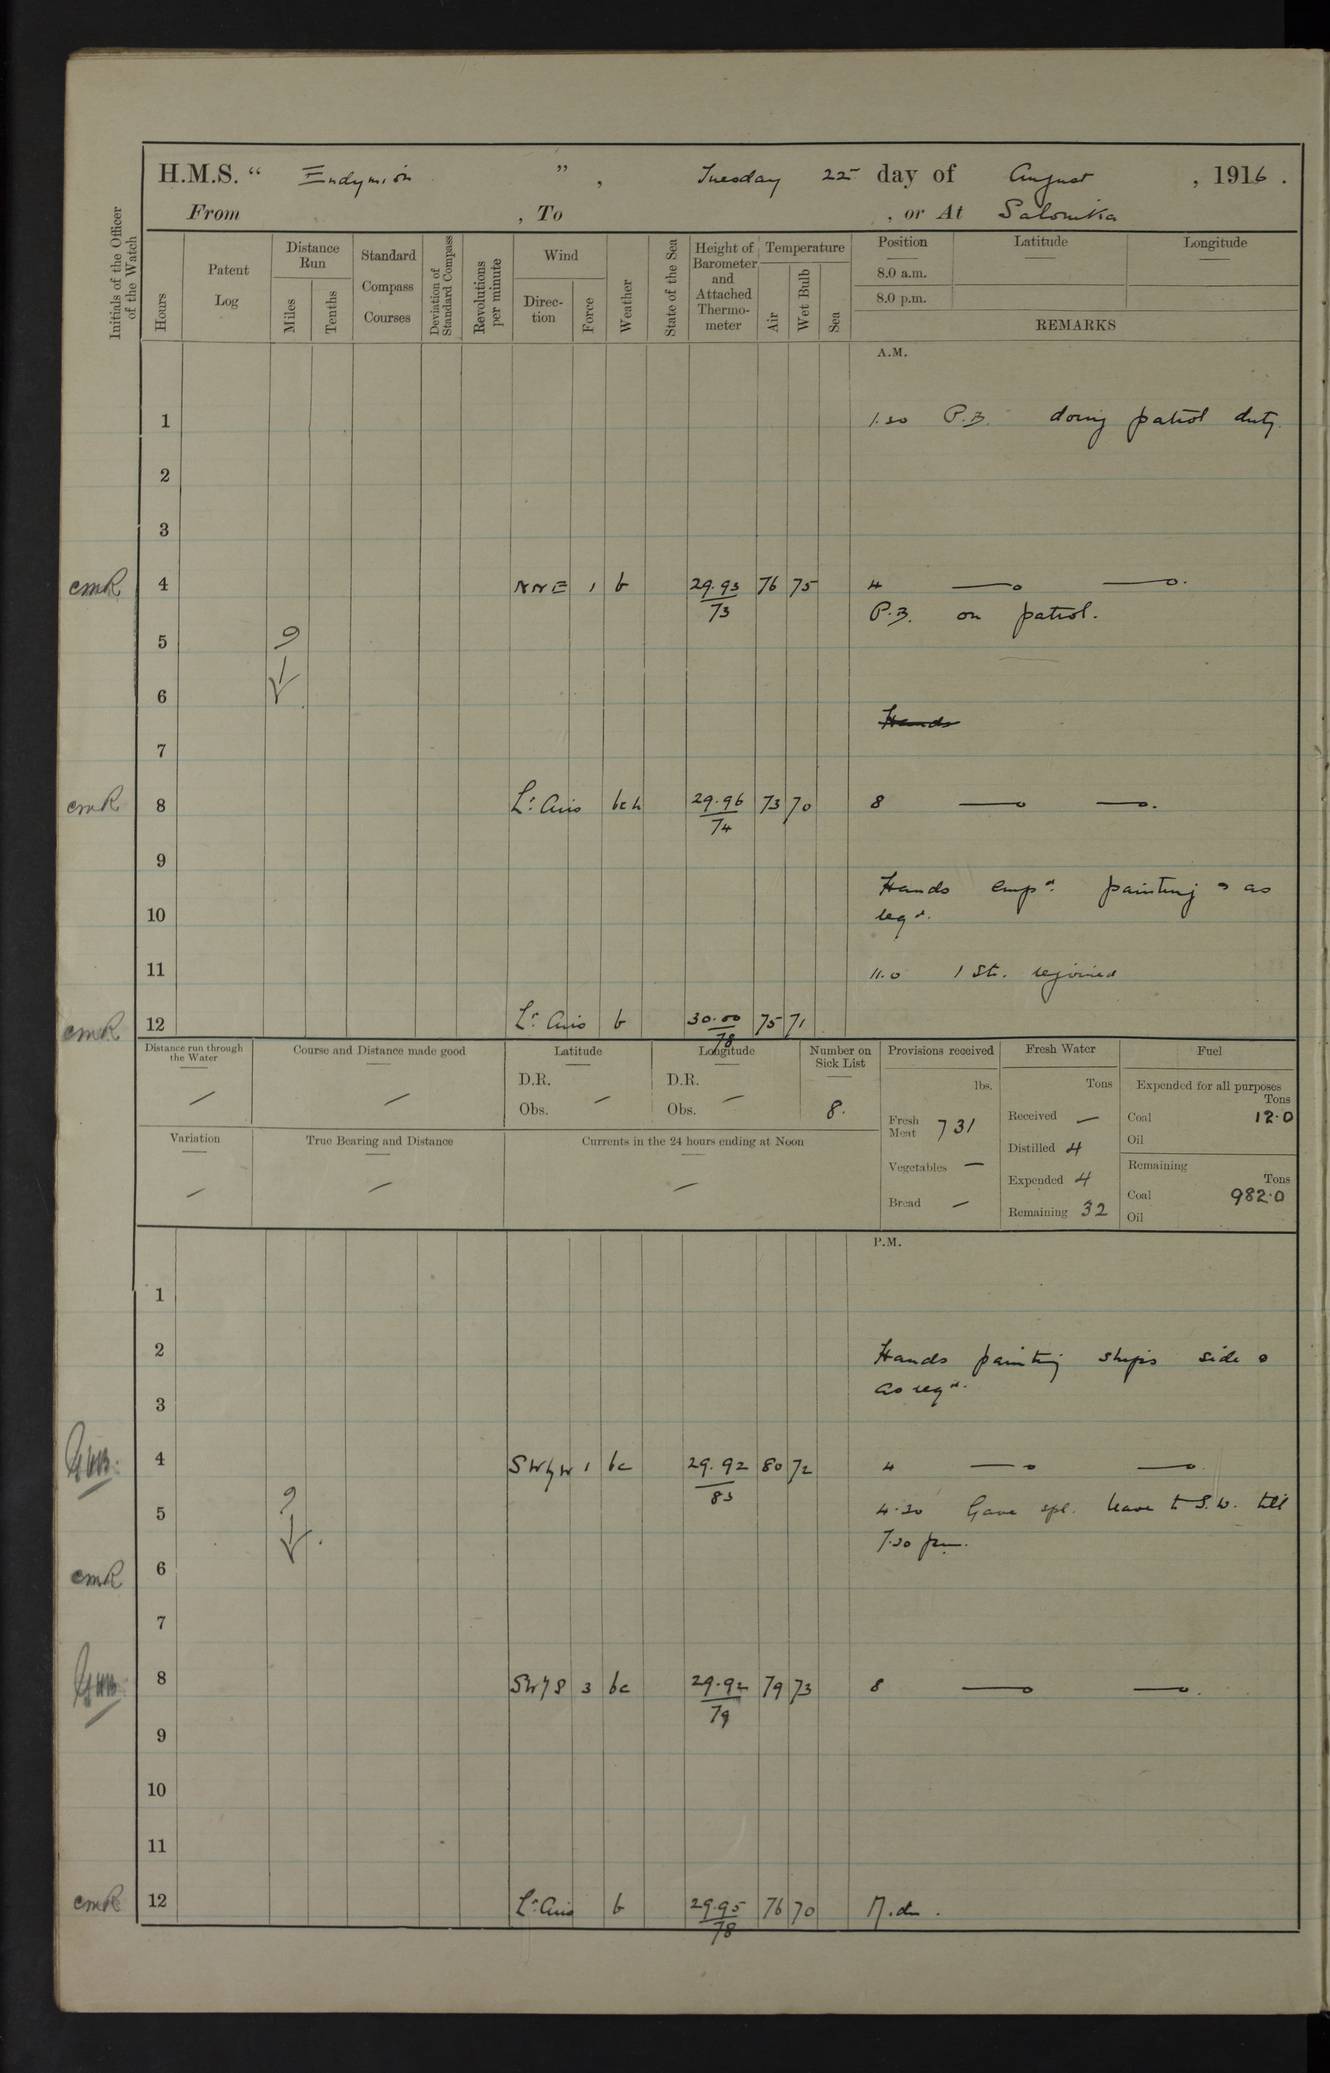 H.M.S. " Endymion ", Tuesday 22 day of August, 1916.
From , To , or At Salonika
Initials of the Officer of the Watch
Hours
Patent Log
Distance Run
Miles
Tenths
Standard Compass Courses
Deviation of Standard Compass
Revolutions per minute
Wind
Direc-tion
Force
Weather
State of the Sea
Height of Barometer and Attached Thermo-meter
Temperature
Air
Wet Bulb
Sea
Position
Latitude
Longitude
8.0 a.m.
8.0 p.m.
REMARKS
A.M.
1 1.30 P.B. doing patrol duty.
2
3
cmR 4 NNE 1 b 29.93 76 75 4
73 P.B. on patrol.
5
6
Hands
7
cmR 8 Lt Airs bch 29.96 73 70 8
74
9
Hands empd. painting & as
10 reqd.
11 11.0 1 St. rejoined
cmR 12 Lt Airs b 30.00 75 71
78
Distance run through the Water
Course and Distance made good
Latitude
D.R.
Obs.
Longitude
D.R.
Obs.
Number on Sick List
8.
Variation
True Bearing and Distance
Currents in the 24 hours ending at Noon
Provisions received
lbs.
Fresh Meat 731
Vegetables —
Bread —
Fresh Water
Tons
Received —
Distilled 4
Expended 4
Remaining 32
Fuel
Expended for all purposes
Tons
Coal 12.0
Oil
Remaining
Tons
Coal 982.0
Oil
P.M.
1
2 Hands painting ships side &
as reqd.
3
4 SWbyW 1 bc 29.92 80 72 4
83
5 4.30 Gave spl. leave to S.W. till
7.30 pm.
cmR 6
7
8 SWbyS 3 bc 29.92 79 73 8
79
9
10
11
cmR 12 Lt Airs b 29.95 76 70 M.d.
78